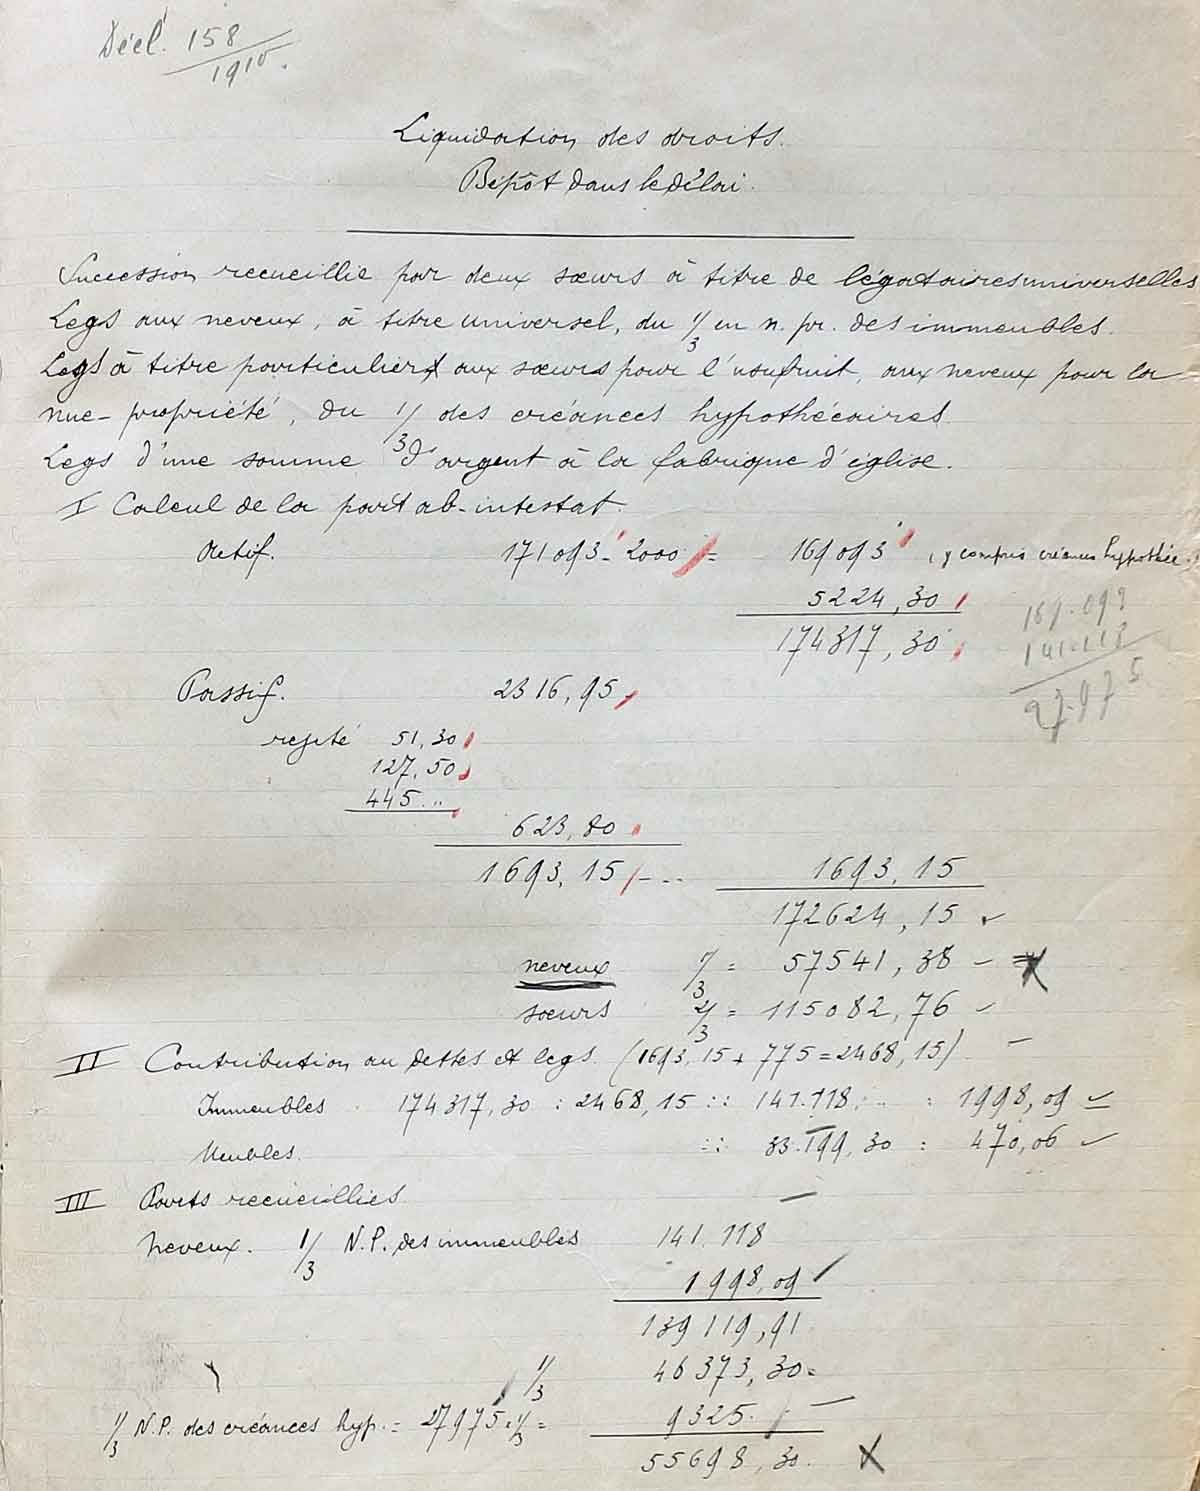 Décl. 158/1910.
Liquidation des droits.
Dépôt dans le délai.
Succession recueillie par deux sœurs à titre de légataires universelles
Legs aux neveux, à titre universel, du 1/3 en n. pr. des immeubles.
Legs à titre particulier aux sœurs pour l'usufruit, aux neveux pour la
nue-propriété, du 1/3 des créances hypothécaires.
Legs d'une somme d'argent à la fabrique d'église.
I Calcul de la part ab-intestat.
Actif. 171093 - 2000 = 169093 (y compris créances hypothéc.)
5224,30
174317,30
169.093
141.118
27.975
Passif. 2316,95
rejeté 51,30
127,50
445 ..
623,80
1693,15 - .. 1693,15
172624,15
neveux 1/3 = 57541,38
sœurs 2/3 = 115082,76
II Contribution au dettes et legs. (1693,15 + 775 = 2468,15)
Immeubles 174317,30 : 2468,15 :: 141.118. : 1998,09
Meubles. :: 33.199,30 : 470,06
III Parts recueillies
Neveux. 1/3 N.P. des immeubles 141.118
1998,09
139119,91
1/3 46373,30
1/3 N.P. des créances hyp. = 27975 × 1/3 = 9325.
55698,30.